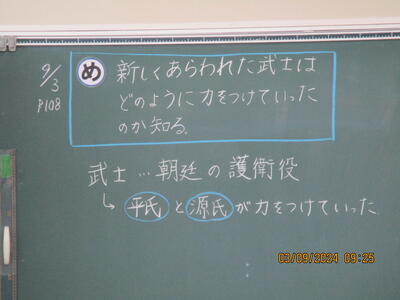 9/3
P108
め 新しくあらわれた武士は
どのように力をつけていった
のか知る。
武士…朝廷の護衛役
↳平氏と源氏が力をつけていった
03/09/2024 09:25